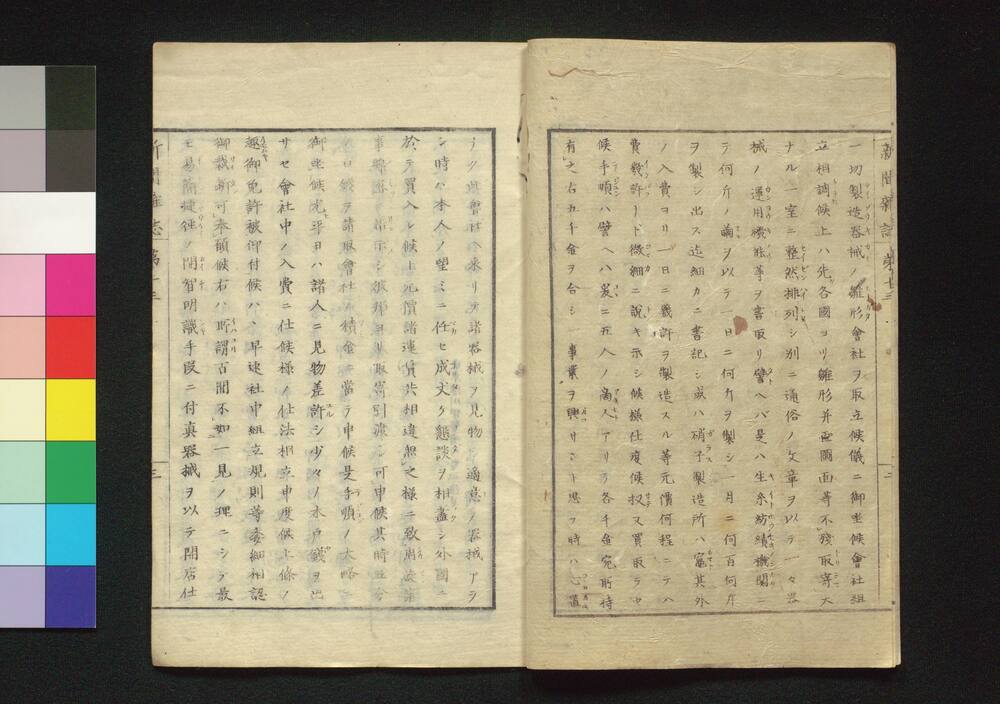 新聞雜誌 第十三
一切製造器械ノ雛形會社ヲ取立候儀ニ御坐候會社組
立相調候上ハ先各國ヨリ雛形并畫圖面等不殘取寄大
ナル一室ニ整然排列シ別ニ通俗ノ文章ヲ以テ一々器
械ノ運用機能等ヲ書取リ譬ヘバ是ハ生糸紡績機關ニ
テ何斤ノ繭ヲ以テ一日ニ何斤ヲ製シ一月ニ何百何斤
ヲ製シ出ス迄細カニ書記シ或ハ硝子製造所ハ竈其外
ノ入費ヨリ一日ニ幾許ヲ製造スル等元價何程ニテハ
費數許ト微細ニ説キ示シ候樣仕度候扨又買取ラ
候手順ハ譬ヘハ爰ニ五人ノ商人アリテ各千金宛所持
有之右五千金ヲ合シ事業ヲ興サント思フ時ハ心置
ナク此會社ヘ來リテ諸器械ヲ見物シ適意ノ器械アラ
シ時ハ本人ノ望ミニ任セ成丈ケ懇談ヲ相盡シ外國ニ
於テ買入レ候上元價諸運賃共相違無之樣ニ致
シ可申候其時
口錢ヲ請取會社ノ積金ニ當テ申候是手順ノ大略ニ
御坐候尤平日ハ諸人ニ見物差許シ少々ノ木戸錢ヲ出
サセ會社中ノ入費ニ仕候樣ノ仕法相立申度候上條ノ
趣御免許被仰付候ハヽ早速社中組立規則等委細相認
御裁斷可奉願候右ハ所謂百聞不如一見ノ理ニシテ最
モ易簡捷徑ノ開智明識手段ニ付真器械ヲ以テ開店仕
新聞雜誌 第十三
三